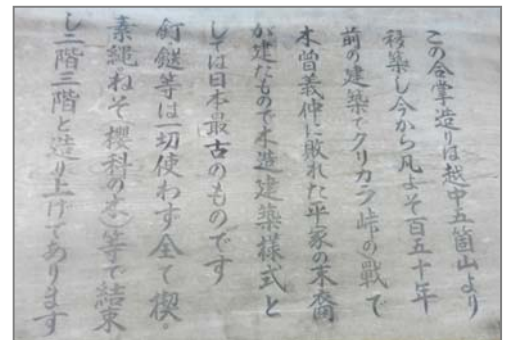 この合掌造りは越中五箇山より
移築し今から凡よそ百五十年
前の建築でクリカラ峠の戰で
木曽義仲に敗れた平家の末裔
が建たもので木造建築様式と
しては日本最古のものです
釘鎹等は一切使わず全て楔・
素縄ねそ(櫻科の木)等で結束
し二階三階と造り上げてあります